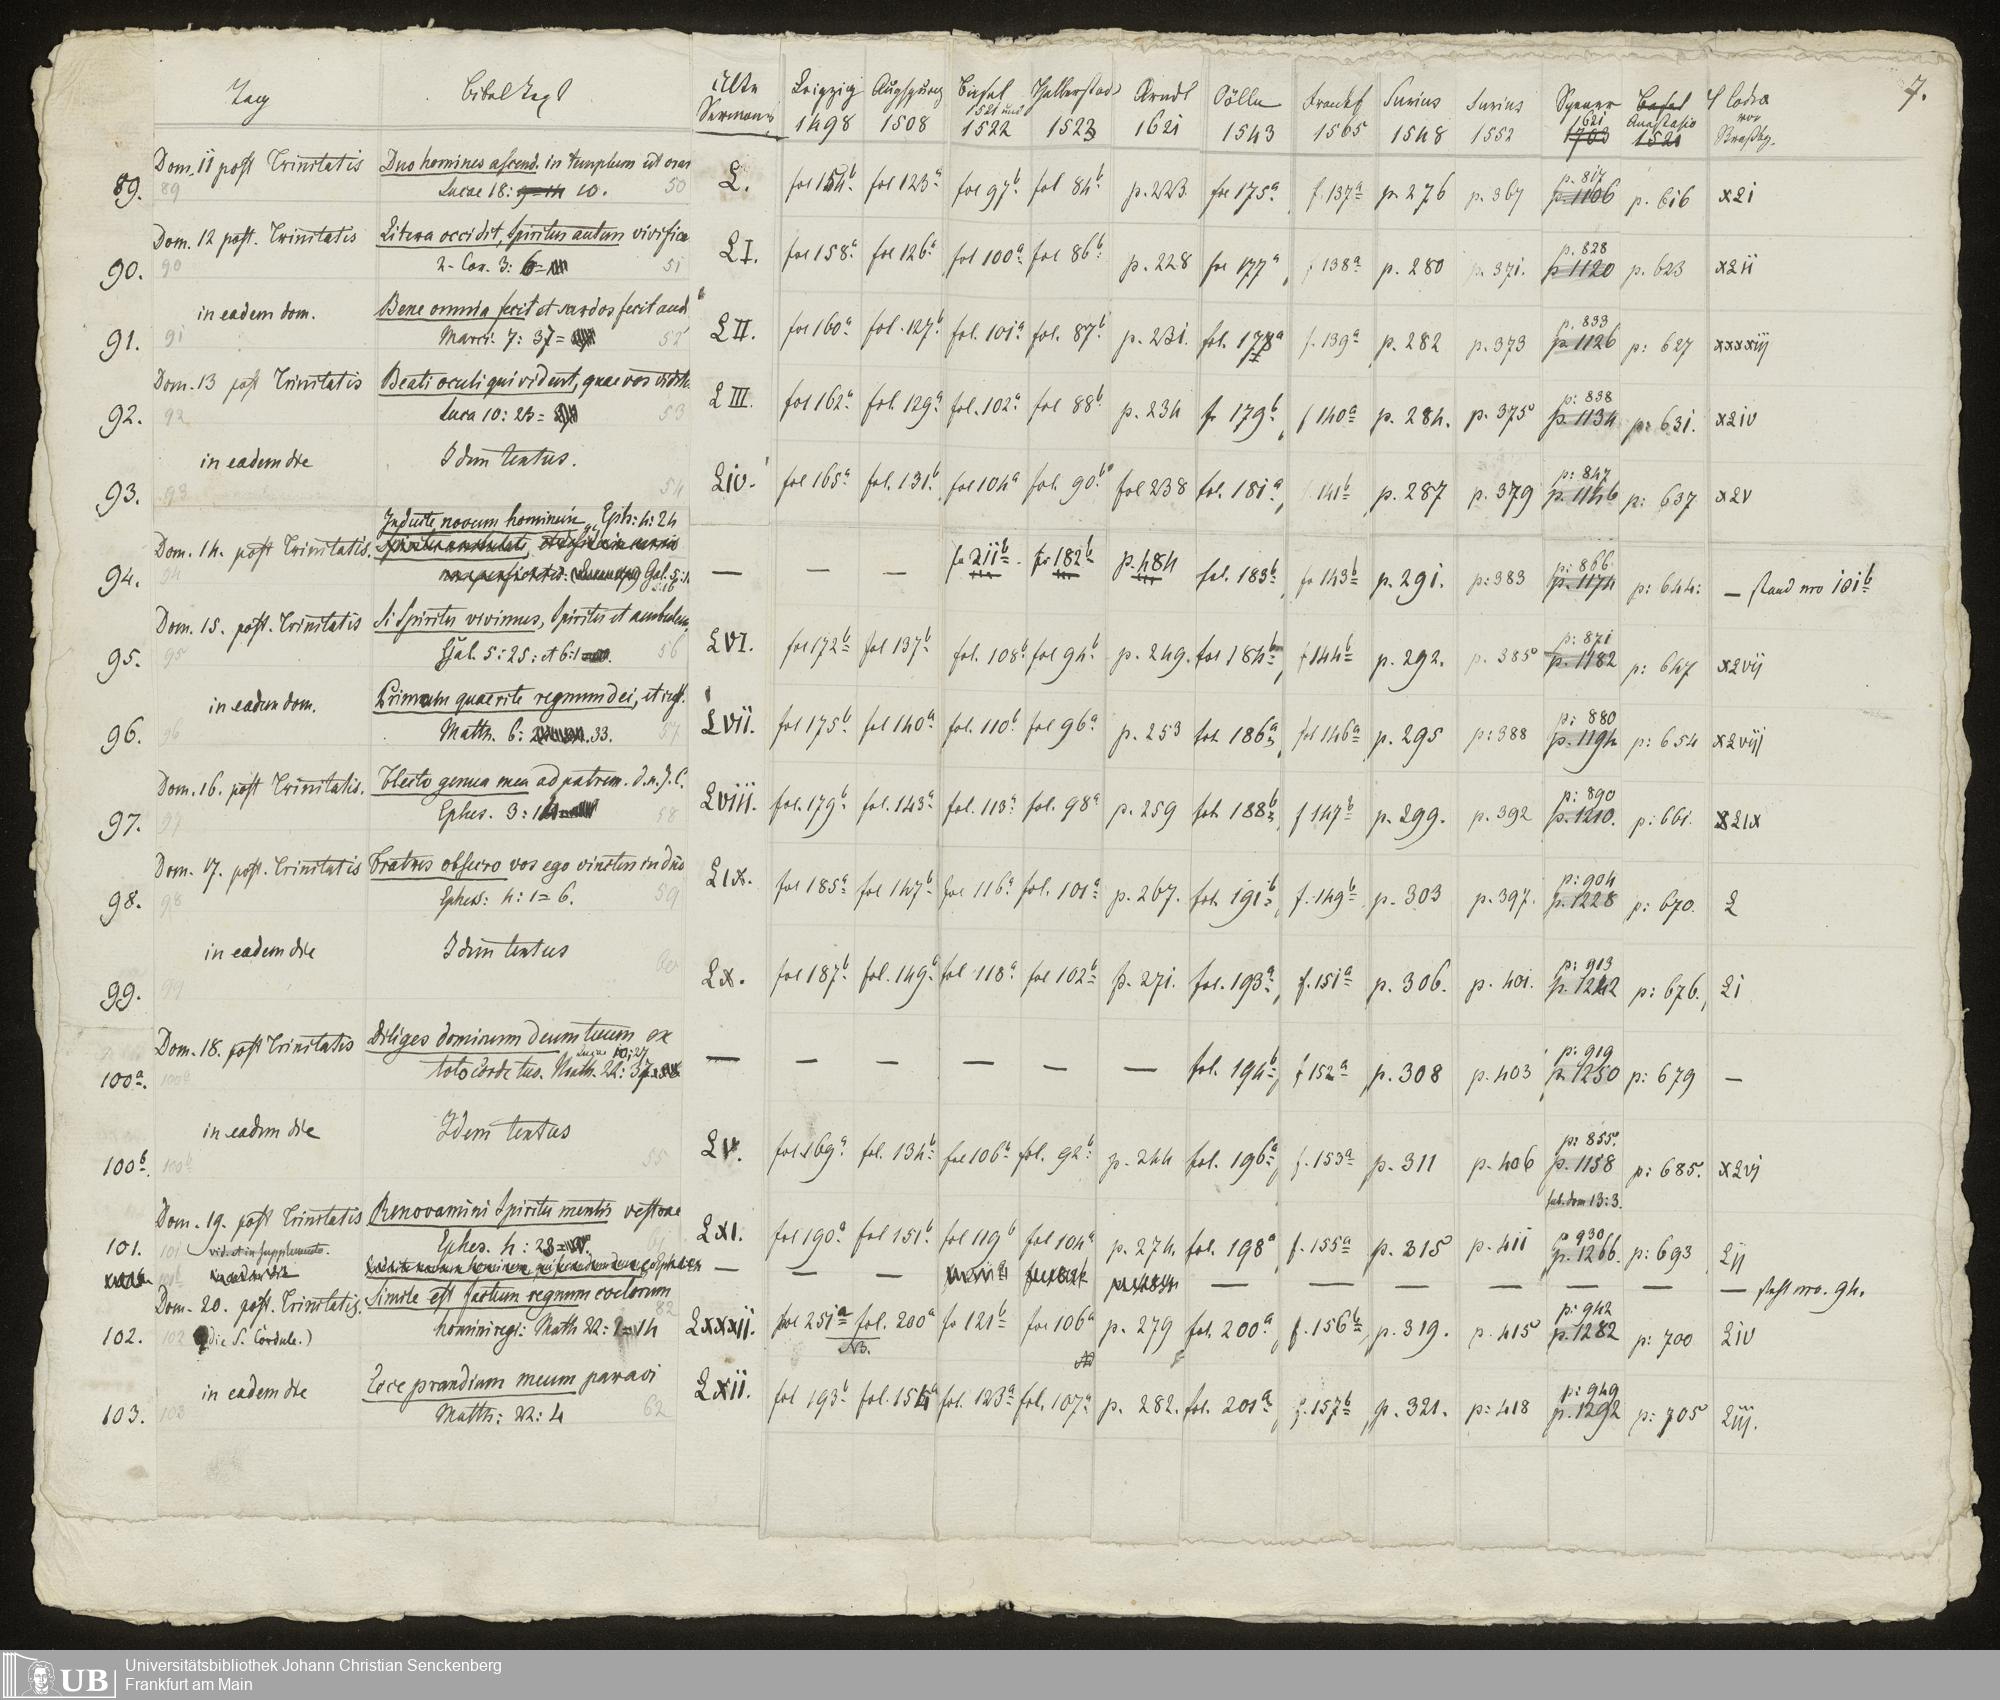 7.
Tag Bibel Text Alte Leipzig Augspurg Basel Halberstad Arndt Cölln Frankf Surius Surius Spener Basel 4 Codex
Sermones 1498 1508 1521 und 1522 1523 1621 1543 1565 1548 1552 1621 1703 Anastasio 1521 von Strasbg.
Dom. 11 post Trinitatis Duo homines ascend. in templum ut orar
89. 89 Lucae 18: 9=14 10. 50 L. fol 154b fol 123a fol 97b fol 84b p. 223 fol 175a f. 137a p. 276 p. 367 p. 817 p. 1106 p. 616 x2i
Dom. 12 post. Trinitatis Litera occidit, Spiritus autem vivifica
90. 90 2. Cor. 3: 6= 51 LI. fol 158a fol 126a fol 100a fol 86b p. 228 fol 177a f 138a p. 280 p. 371. p. 828 p 1120 p. 623 x2ii
in eadem dom. Bene omnia fecit et surdos fecit aud
91. 91 Marci. 7: 37= 52 LII. fol 160a fol. 127b fol. 101a fol. 87b p. 231. fol. 178a f. 139a p. 282 p. 373 p. 833 p. 1126 p: 627 xxxxiij
Dom. 13 post Trinitatis Beati oculi qui vident, quae vos videtis
92. 92 Luca 10: 23= 53 LIII. fol 162a fol. 129a fol. 102a fol 88b p. 234 fo 179b f 140a p. 284. p. 375 p: 838 p. 1134 p: 631. x2iv
in eadem die Idem textus.
93. 93 54 Liv. fol 165a fol. 131b fol 104a fol. 90b fol 238 fol. 181a f. 141b p. 287 p. 379 p: 847 p. 1146 p: 637 x2v
Induite novum hominem, Eph: 4: 24
Dom. 14. post Trinitatis.
94. 94 Gal. 5: 16 — — — fo 211b fo 182b p. 484 fol. 183b fo 143b p. 291. p: 383 p: 866 p. 1174 p: 644: — stand nro 101b
Dom. 15. post. Trinitatis Si Spiritu vivimus, Spiritu et ambulem
95. 95 Gal. 5: 25: et 6: 1 56 LVI. fol 172b fol 137b fol. 108b fol 94b p. 249. fol 184b f 144b p. 292. p. 385 p: 871 p. 1182 p: 647 x2vij
in eadem dom. Primum quaerite regnum dei, et iust.
96. 96 Matth. 6: 33. 57 Lvii. fol 175b fol 140a fol. 110b fol 96a p. 253 fol. 186a fol 146a p. 295 p: 388 p: 880 p. 1194 p: 654 x2viij
Dom. 16. post Trinitatis. Flecto genua mea ad patrem. d. n. J. C.
97. 97 Ephes. 3: 14 58 Lviii. fol. 179b fol. 143a fol. 113a fol. 98a p. 259 fol. 188b f 147b p. 299. p. 392 p: 890 p. 1210. p: 661. x2ix
Dom. 17. post. Trinitatis Fratres obsecro vos ego vinctus in dno
98. 98 Ephes: 4: 1= 6. 59 Lix. fol 185a fol 147b fol 116a fol. 101a p. 267. fol. 191b f. 149b p. 303 p. 397. p: 904 p. 1228 p: 670. 2
in eadem die Idem textus
99. 99 60 Lx. fol 187b fol. 149b fol 118a fol 102b p. 271. fol. 193a f. 151a p. 306. p. 401. p: 913 p. 1242 p: 676. 2i
Dom. 18. post Trinitatis Diliges dominum deum tuum ex
Lucas 10: 27
100a. 100a toto corde tuo. Math. 22: 37. — — — — — — fol. 194b f 152a p. 308 p. 403 p: 919 p. 1250 p: 679 —
in eadem die Idem textus
100b. 100b 55 LV. fol. 169a fol. 134b fol 106a fol. 92b p. 244 fol. 196a f. 153a p. 311 p. 406 p: 855. p. 1158 p: 685. x2vj
sub. dom 13: 3.
Dom. 19. post Trinitatis Renovamini Spiritu mentis vestrae
101. 101 vid. et in supplemento. Ephes. 4: 23= 61 LXI. fol 190a fol 151b fol 119b fol 104a p. 274. fol. 198a f. 155a p. 315 p. 411 p 930 p. 1266. p: 693 2ij
in eadem die — — — — — — — — — — — steht nro. 94.
Dom. 20. post. Trinitatis. Simile est factum regnum coelorum
102. 102 (die S. Cordule.) homini regi: Math 22: 2=14 82 LXXXII. fol 251a fol. 200a fo 121b fol 106a p. 279 fol. 200a f. 156b p. 319. p. 415 p: 942 p. 1282 p: 700 2iv
NB. NB
in eadem die Ecce prandium meum paravi
103. 103 Matth: 22: 4 62 Lxii. fol 193b fol. 154a fol. 123a fol. 107a p. 282. fol. 201a f. 157b p. 321. p: 418 p: 949 p. 1292 p: 705 2iij.
UB
Universitätsbibliothek Johann Christian Senckenberg
Frankfurt am Main